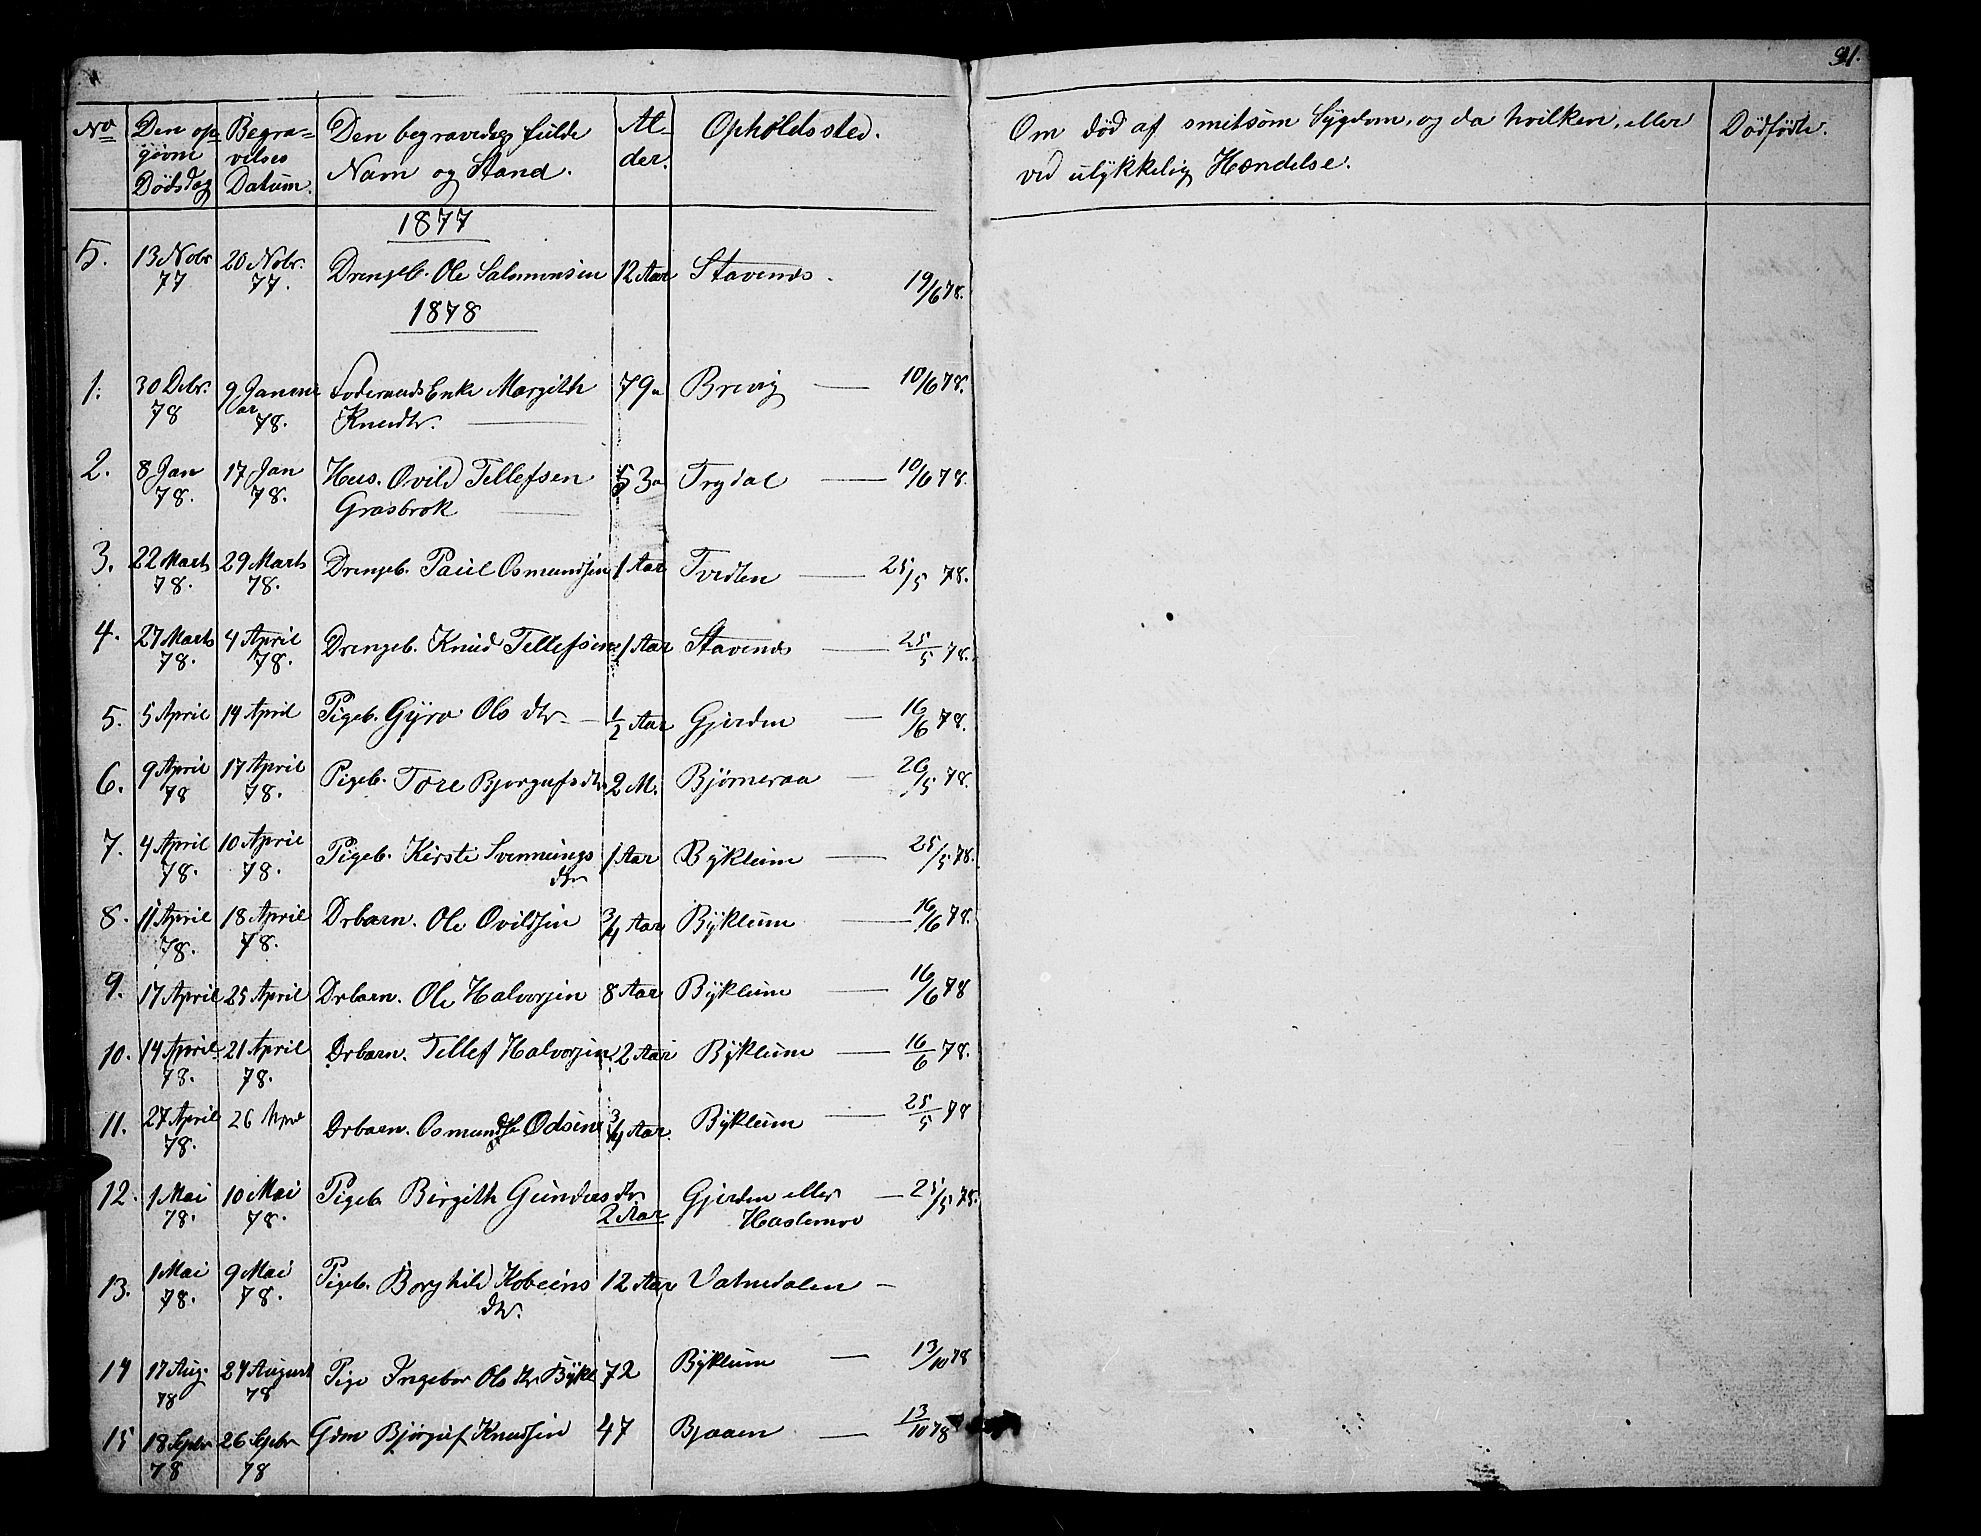 91.
No Den op- Begra= Den begravedes fulde Al- Opholdssted. Om död af smitsom Sygdom, og da hvilken, eller Dödfödte.
givne vilses Nam og Stand. der. ved ulykkelig Hændelse.
Dödsdag Datum.
1877
5. 13 Nobr 20 Nobr. Drengeb. Ole Salamonsen 12 Aar Stavenes. 19/6 78.
77 77.
1878
1. 30 Debr. 9 Januar Enke Margith 79 a Brevig — 10/6 78.
78 78. Knudtr.
2. 8 Jan 17 Jan Hus. Ovild Tellefsen 53 a Trydal — 10/6 78.
78. 78. Grasbrok
3. 22 Marts 29 Marts Drengeb. Paul Osmundsen 1 Aar Tvedten — 25/5 78.
78. 78.
4. 27 Marts 4 April Drengeb. Knud Tellefsen 1 Aar Stavenes — 25/5 78.
78. 78.
5. 5 April 14 April Pigeb. Gyro Ols dtr — 1/2 Aar Gjerden — 16/6 78.
6. 9 April 17 April Pigeb. Tore Bjorgufs dtr 2 M. Bjørneraa — 26/5 78.
78 78.
7. 4 April 10 April Pigeb. Kirsti Svennungs 1 Aar Byklum — 25/5 78.
78. 78. dtr
8. 11 April 18 April Drbarn. Ole Ovildsen 3/4 Aar Byklum — 16/6 78.
78. 78.
9. 17 April 25 April Drbarn. Ole Halvorsen 8 Aar Byklum — 16/6 78
10. 14 April 21 April Drbarn. Tellef Halvorsen 2 Aar Byklum — 16/6 78.
78. 78.
11. 27 April 26 Drbarn. Osmund Odsen 3/4 Aar. Byklum — 25/5 78
78.
12. 1 Mai 10 Mai Pigeb. Birgith Gunders dtr Gjerden eller — 25/5 78.
78. 78. 2 Aar Haslemoe
13. 1 Mai 9 Mai Pigeb. Borghild Kobeins 12 Aar Vatnedalen —
78. 78. dtr.
14 17 Aug. 24 August Pige Ingebor Ols dtr Bykl 72 Byklum — 13/10 78
78 78
15 18 Septbr 26 Septbr Gdm Bjørguf Knudsen 47 Bjaaen — 13/10 78
78 78